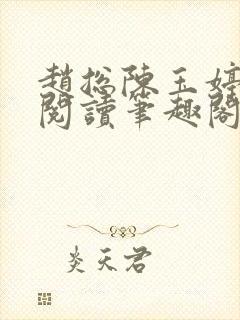 趙擥陳玉婷
閱讀筆趣閣
炎天君